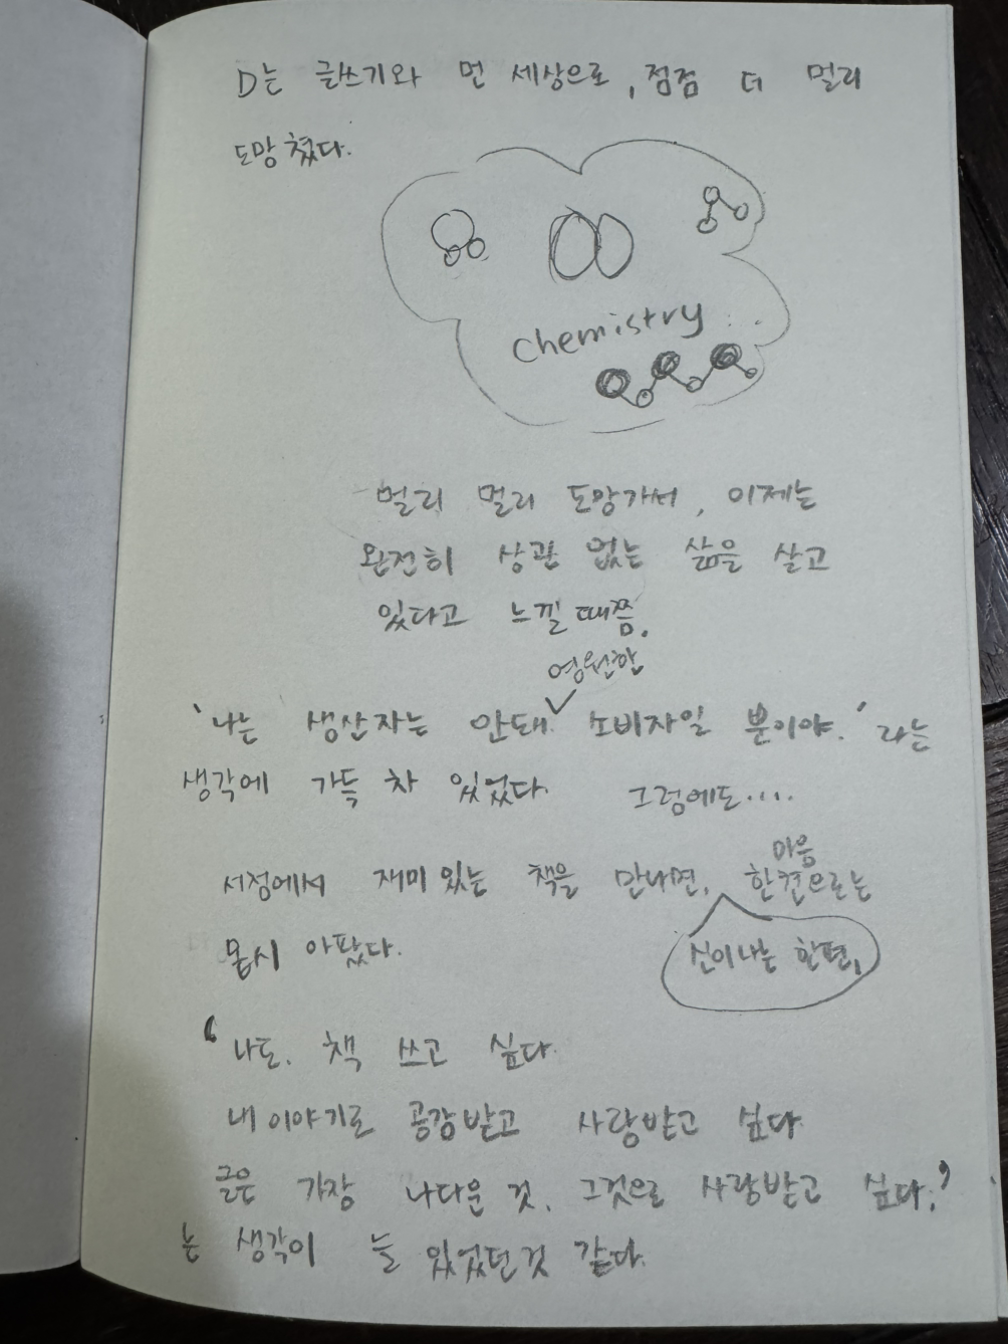 D는 글쓰기와 먼 세상으로, 점점 더 멀리
도망쳤다.
chemistry
멀리 멀리 도망가서, 이제는
완전히 상관 없는 삶을 살고
있다고 느낄 때쯤,
영원한
'나는 생산자는 안돼. 소비자일 뿐이야.' 라는
생각에 가득 차 있었다. 그럼에도....
마음
서점에서 재미있는 책을 만나면, 한켠으로는
신이나는 한편,
몹시 아팠다.
'나도. 책 쓰고 싶다.
내 이야기로 공감받고 사랑받고 싶다
글은 가장 나다운 것. 그것으로 사랑받고 싶다.'
는 생각이 늘 있었던것 같다.